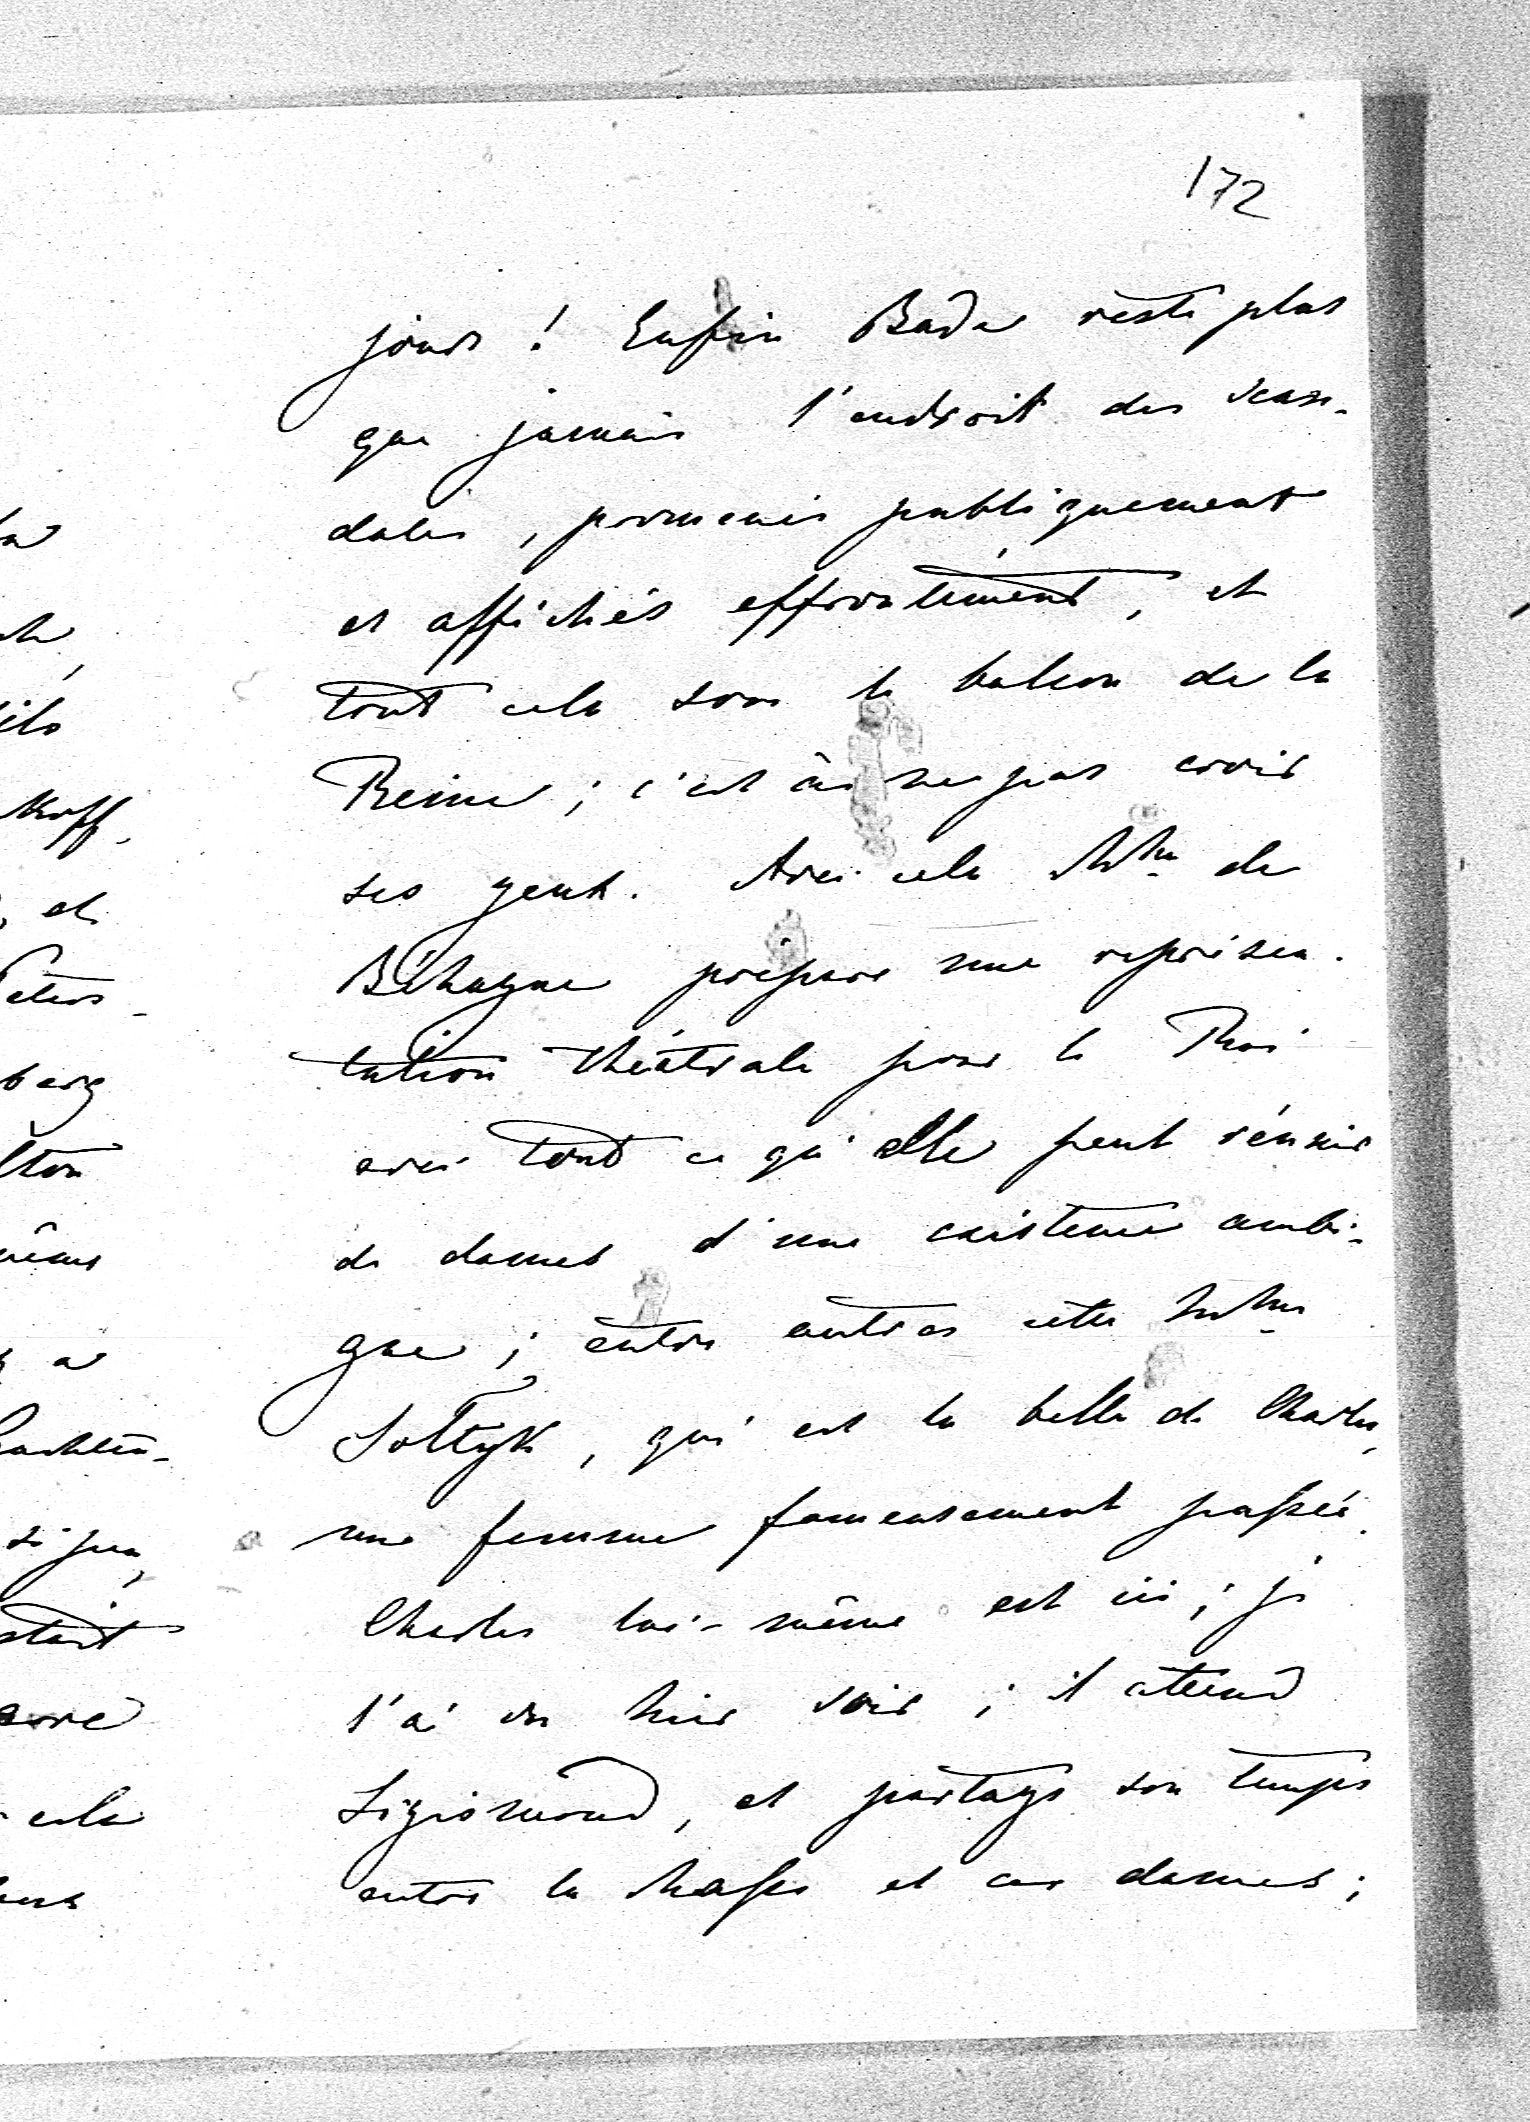 172
jours ! Enfin Bade reste plus
que jamais l'endroit des scan-
dales, promenés publiquement
et affichés effrontément, et
tout cela sous le balcon de la
Reine ; c'est à ne pas croire
ses yeux. Avec cela Mme de
Béhague prépare une représen-
tation théâtrale pour le Roi
avec tout ce qu'elle peut réunir
de dames d'une existence ambi-
gue ; entre autres cette Mme
Soltyk, qui est la belle de Charles,
une femme fameusement passée.
Charles lui-même est ici ; je
l'ai vu hier soir ; il attend
Sigismond, et partage son temps
entre la chasse et ces dames ;